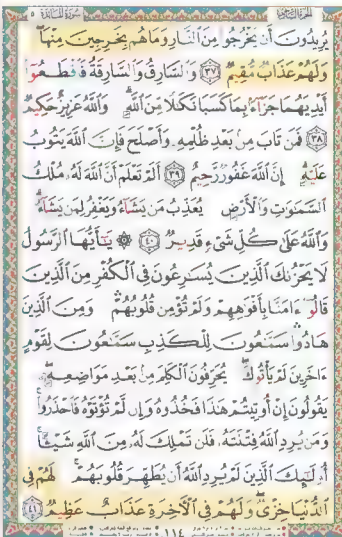 الجزء السادس سورة المائدة ٥
يُرِيدُونَ أَن يَخْرُجُوا مِنَ النَّارِ وَمَا هُم بِخَٰرِجِينَ مِنْهَا
وَلَهُمْ عَذَابٌ مُّقِيمٌ ٣٧ وَالسَّارِقُ وَالسَّارِقَةُ فَاقْطَعُوا
أَيْدِيَهُمَا جَزَاءً بِمَا كَسَبَا نَكَٰلًا مِّنَ اللَّهِ وَاللَّهُ عَزِيزٌ حَكِيمٌ
٣٨ فَمَن تَابَ مِن بَعْدِ ظُلْمِهِ وَأَصْلَحَ فَإِنَّ اللَّهَ يَتُوبُ
عَلَيْهِ إِنَّ اللَّهَ غَفُورٌ رَّحِيمٌ ٣٩ أَلَمْ تَعْلَمْ أَنَّ اللَّهَ لَهُ مُلْكُ
السَّمَٰوَٰتِ وَالْأَرْضِ يُعَذِّبُ مَن يَشَاءُ وَيَغْفِرُ لِمَن يَشَاءُ
وَاللَّهُ عَلَىٰ كُلِّ شَيْءٍ قَدِيرٌ ٤٠ ۞ يَٰأَيُّهَا الرَّسُولُ
لَا يَحْزُنكَ الَّذِينَ يُسَٰرِعُونَ فِي الْكُفْرِ مِنَ الَّذِينَ
قَالُوا ءَامَنَّا بِأَفْوَٰهِهِمْ وَلَمْ تُؤْمِن قُلُوبُهُمْ وَمِنَ الَّذِينَ
هَادُوا سَمَّٰعُونَ لِلْكَذِبِ سَمَّٰعُونَ لِقَوْمٍ
ءَاخَرِينَ لَمْ يَأْتُوكَ يُحَرِّفُونَ الْكَلِمَ مِن بَعْدِ مَوَاضِعِهِ
يَقُولُونَ إِنْ أُوتِيتُمْ هَٰذَا فَخُذُوهُ وَإِن لَّمْ تُؤْتَوْهُ فَاحْذَرُوا
وَمَن يُرِدِ اللَّهُ فِتْنَتَهُ فَلَن تَمْلِكَ لَهُ مِنَ اللَّهِ شَيْئًا
أُولَٰئِكَ الَّذِينَ لَمْ يُرِدِ اللَّهُ أَن يُطَهِّرَ قُلُوبَهُمْ لَهُمْ فِي
الدُّنْيَا خِزْيٌ وَلَهُمْ فِي الْءَاخِرَةِ عَذَابٌ عَظِيمٌ ٤١
١١٤